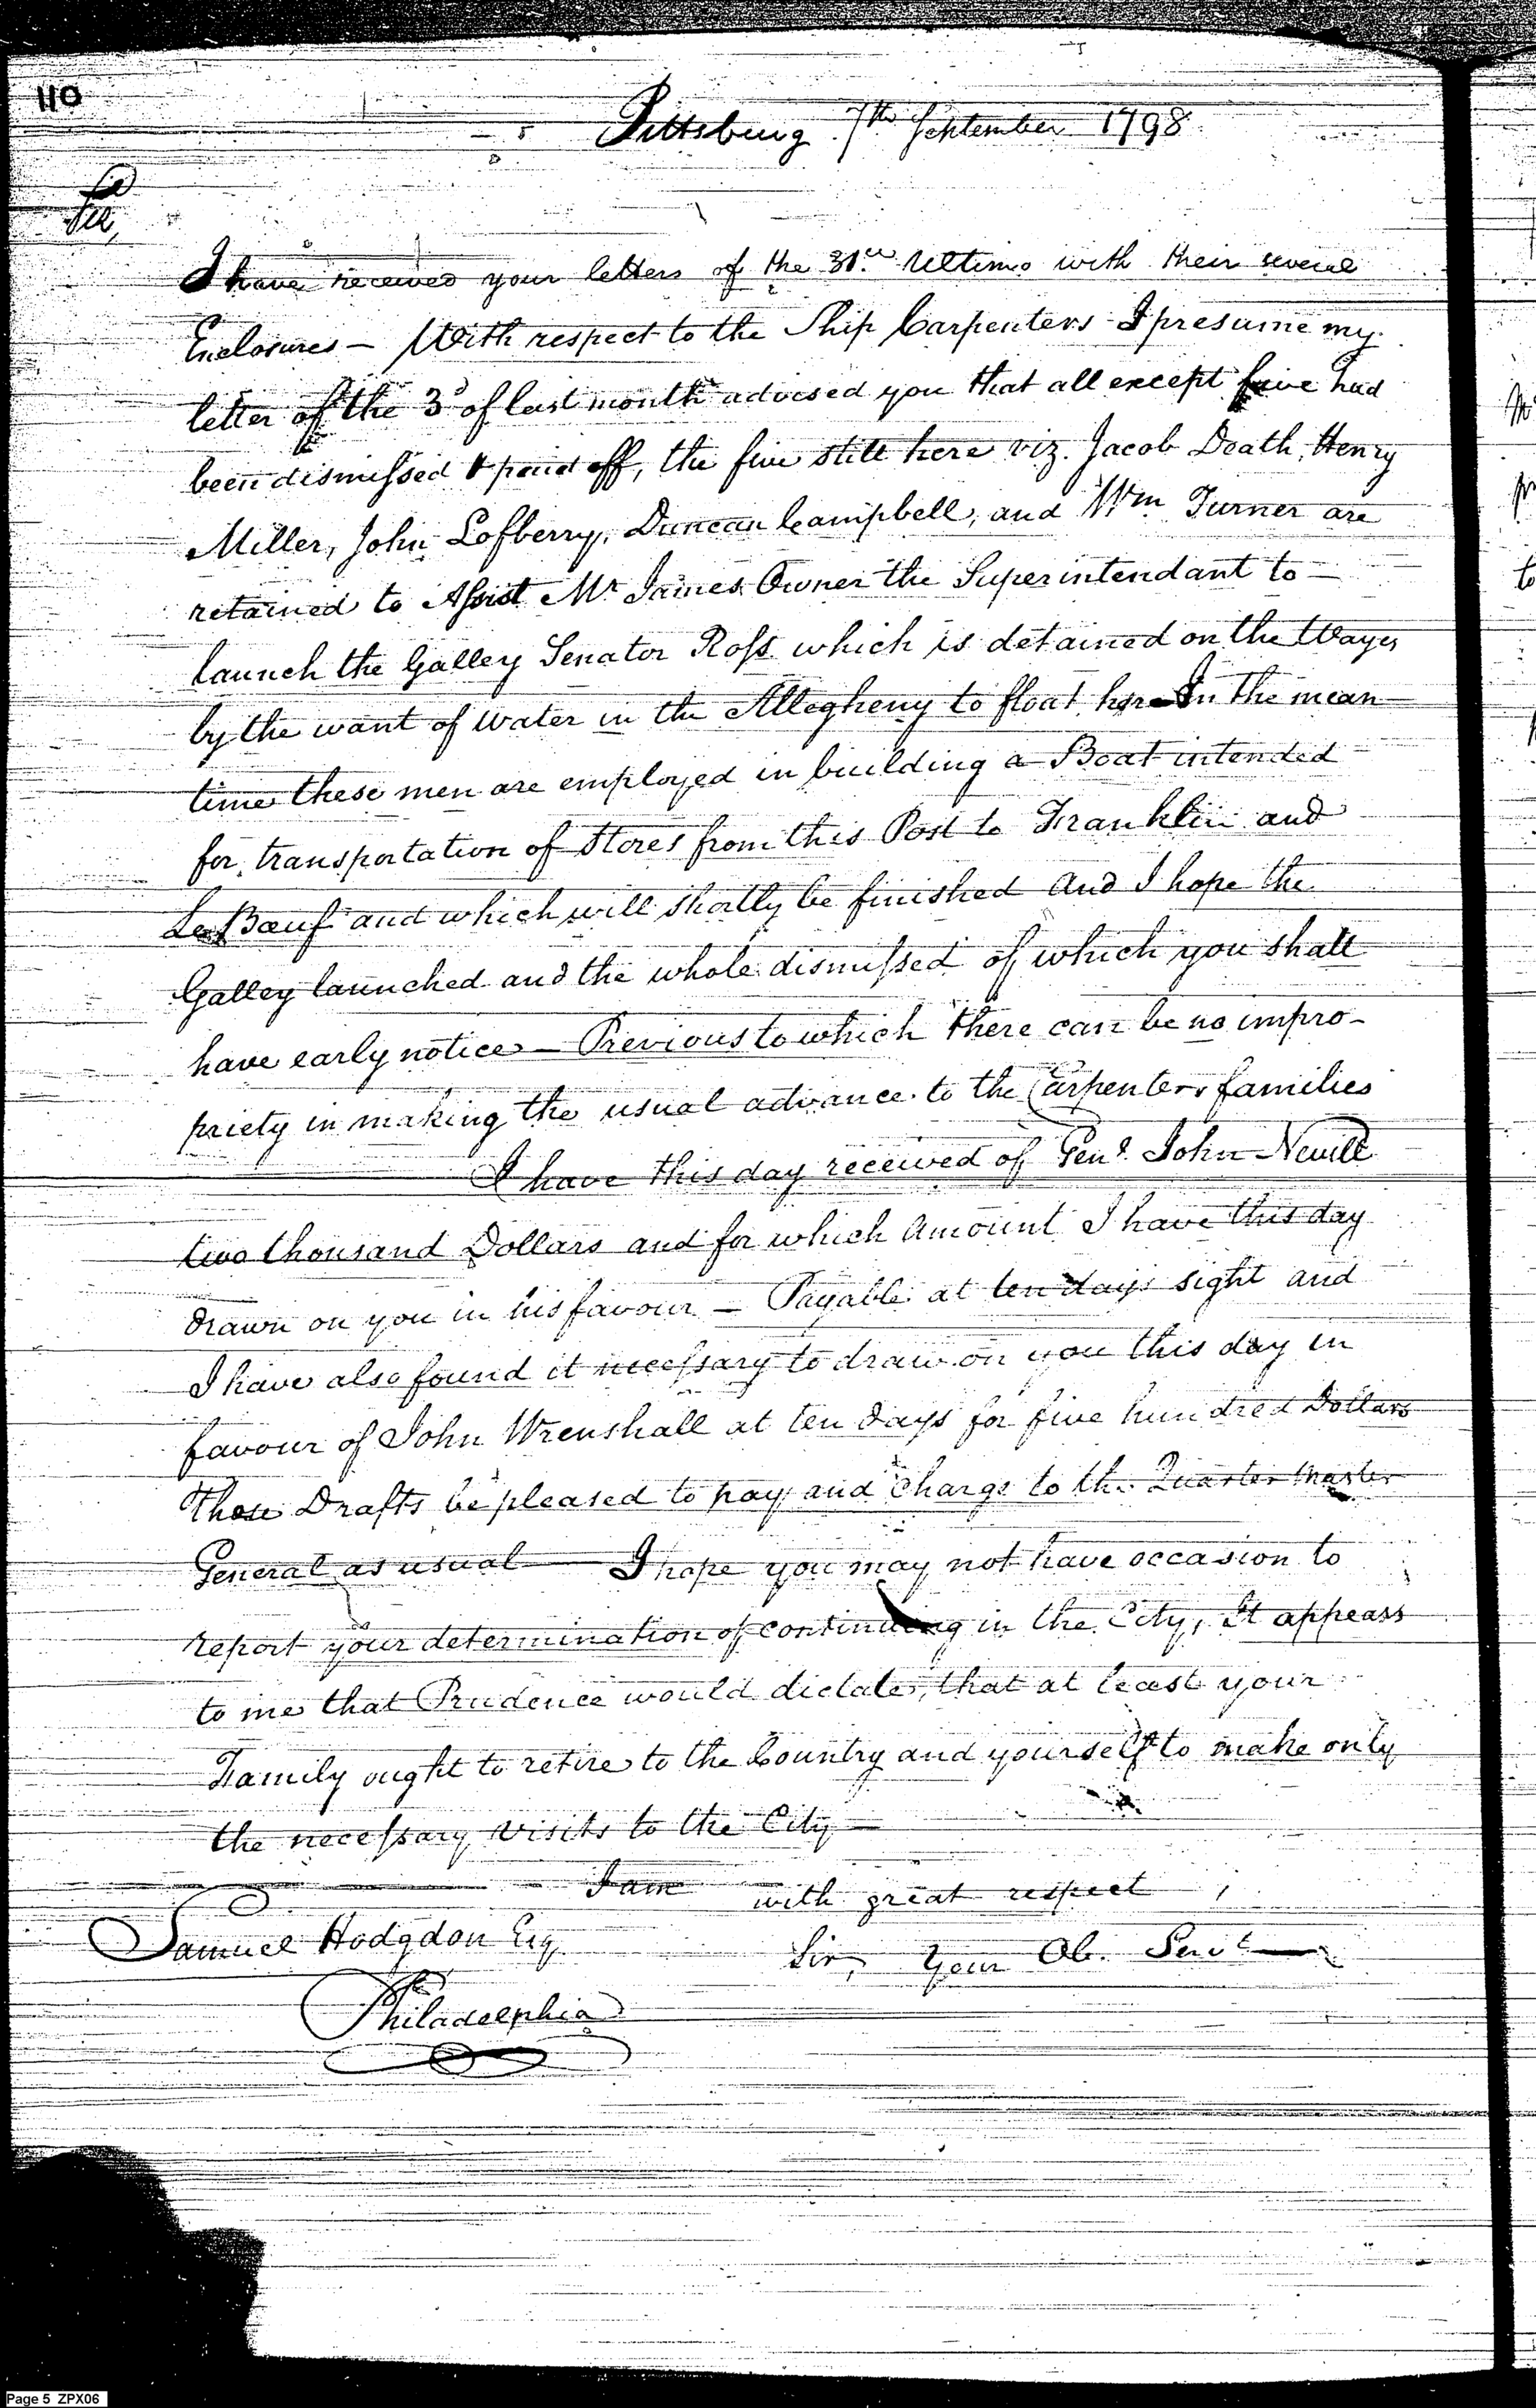 110
Pittsburg 7th September 1798
Sir,
I have received your letters of the 31st Ultimo with their several
Enclosures — With respect to the Ship Carpenters I presume my
letter of the 3d of last month advised you that all except five had
been dismissed & paid off, the five still here viz. Jacob Death, Henry
Miller, John Lofberry, Duncan Campbell, and Wm Turner are
retained to Assist Mr James Owner the Superintendant to —
launch the Galley Senator Ross which is detained on the Ways
by the want of water in the Allegheny to float her — In the mean
time these men are employed in building a Boat intended
for transportation of Stores from this Post to Franklin and
Le Bœuf and which will shortly be finished and I hope the
Galley launched and the whole dismissed of which you shall
have early notice — Previous to which there can be no impro-
priety in making the usual advance to the Carpenters families
I have this day received of Genl John Nevill
two thousand Dollars and for which Amount I have this day
drawn on you in his favour — Payable at ten days sight and
I have also found it necessary to draw on you this day in
favour of John Wrenshall at ten days for five hundred Dollars
Those Drafts be pleased to pay and charge to the Quarter Master
General as usual — I hope you may not have occasion to
report your determination of continuing in the City, It appears
to me that Prudence would dictate, that at least your
Family ought to retire to the Country and yourself to make only
the necessary visits to the City —
I am with great respect,
Samuel Hodgdon Esq
Sir, Your Ob. Servt
Philadelphia
Page 5 ZPX06